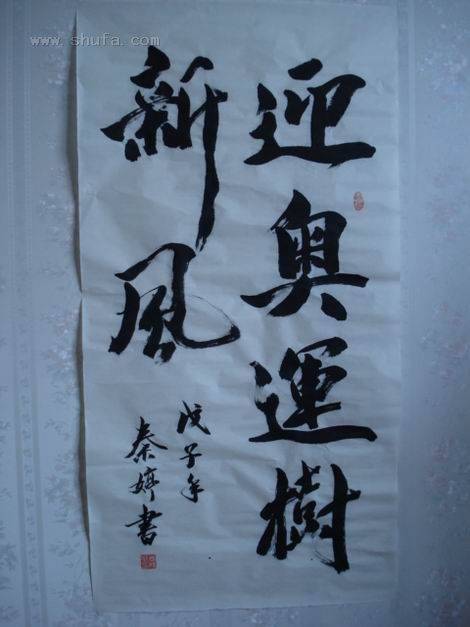 www.shufa.com
迎奥運樹
新風
戊子年
秦婷書